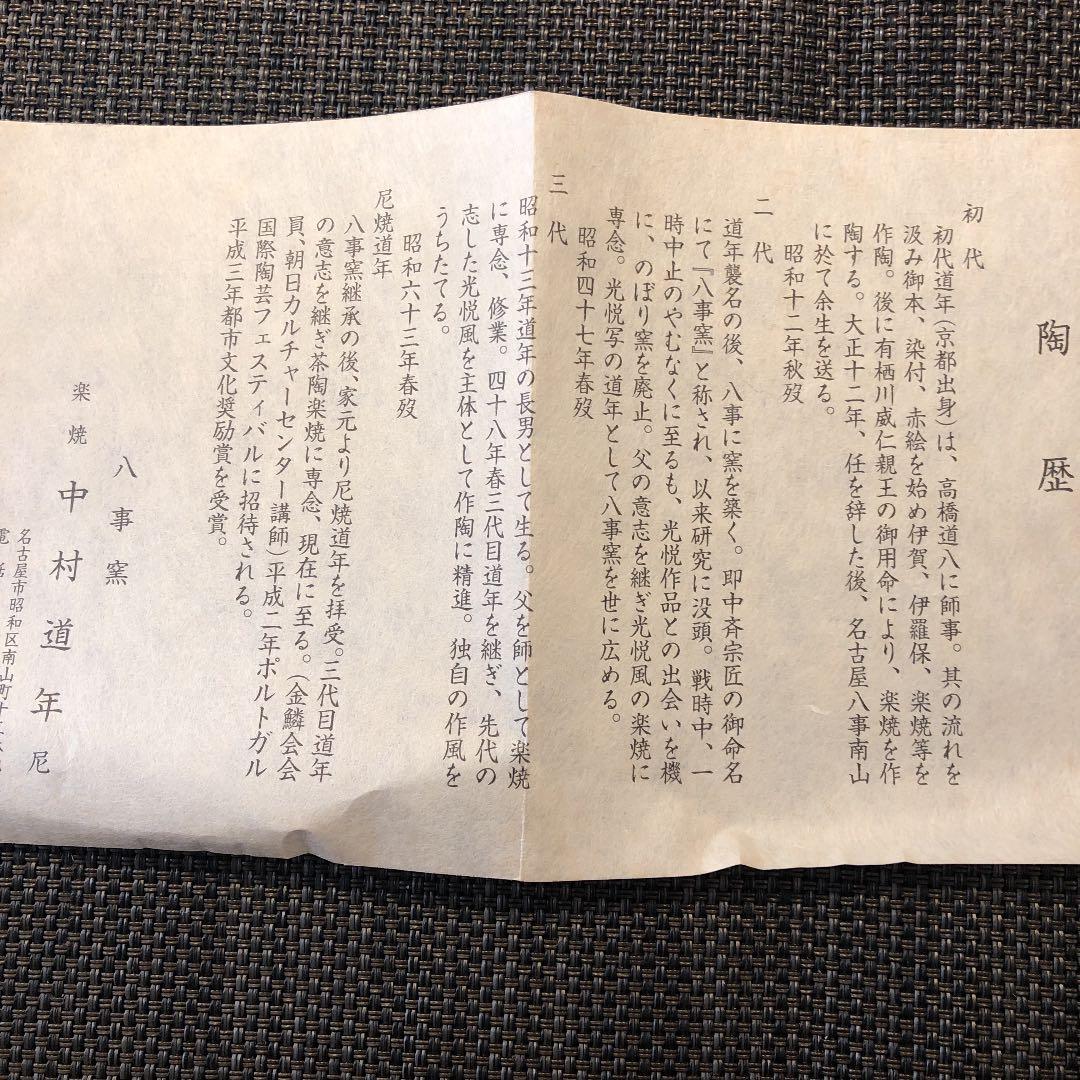 陶歴
初代
初代道年(京都出身)は、高橋道八に師事。其の流れを
汲み御本、染付、赤絵を始め伊賀、伊羅保、楽焼等を
作陶。後に有栖川威仁親王の御用命により、楽焼を作
陶する。大正十二年、任を辞した後、名古屋八事南山
に於て余生を送る。
昭和十二年秋歿
二代
道年襲名の後、八事に窯を築く。即中斉宗匠の御命名
にて『八事窯』と称され、以来研究に没頭。戦時中、一
時中止のやむなくに至るも、光悦作品との出会いを機
に、のぼり窯を廃止。父の意志を継ぎ光悦風の楽焼に
専念。光悦写の道年として八事窯を世に広める。
昭和四十七年春歿
三代
昭和十三年道年の長男として生る。父を師として楽焼
に専念、修業。四十八年春三代目道年を継ぎ、先代の
志した光悦風を主体として作陶に精進。独自の作風を
うちたてる。
昭和六十三年春歿
尼焼道年
八事窯継承の後、家元より尼焼道年を拝受。三代目道年
の意志を継ぎ茶陶楽焼に専念、現在に至る。(金鱗会会
員、朝日カルチャーセンター講師)平成二年ポルトガル
国際陶芸フェスティバルに招待される。
平成三年都市文化奨励賞を受賞。
八事窯
楽焼 中村道年尼
名古屋市昭和区南山町十
電話